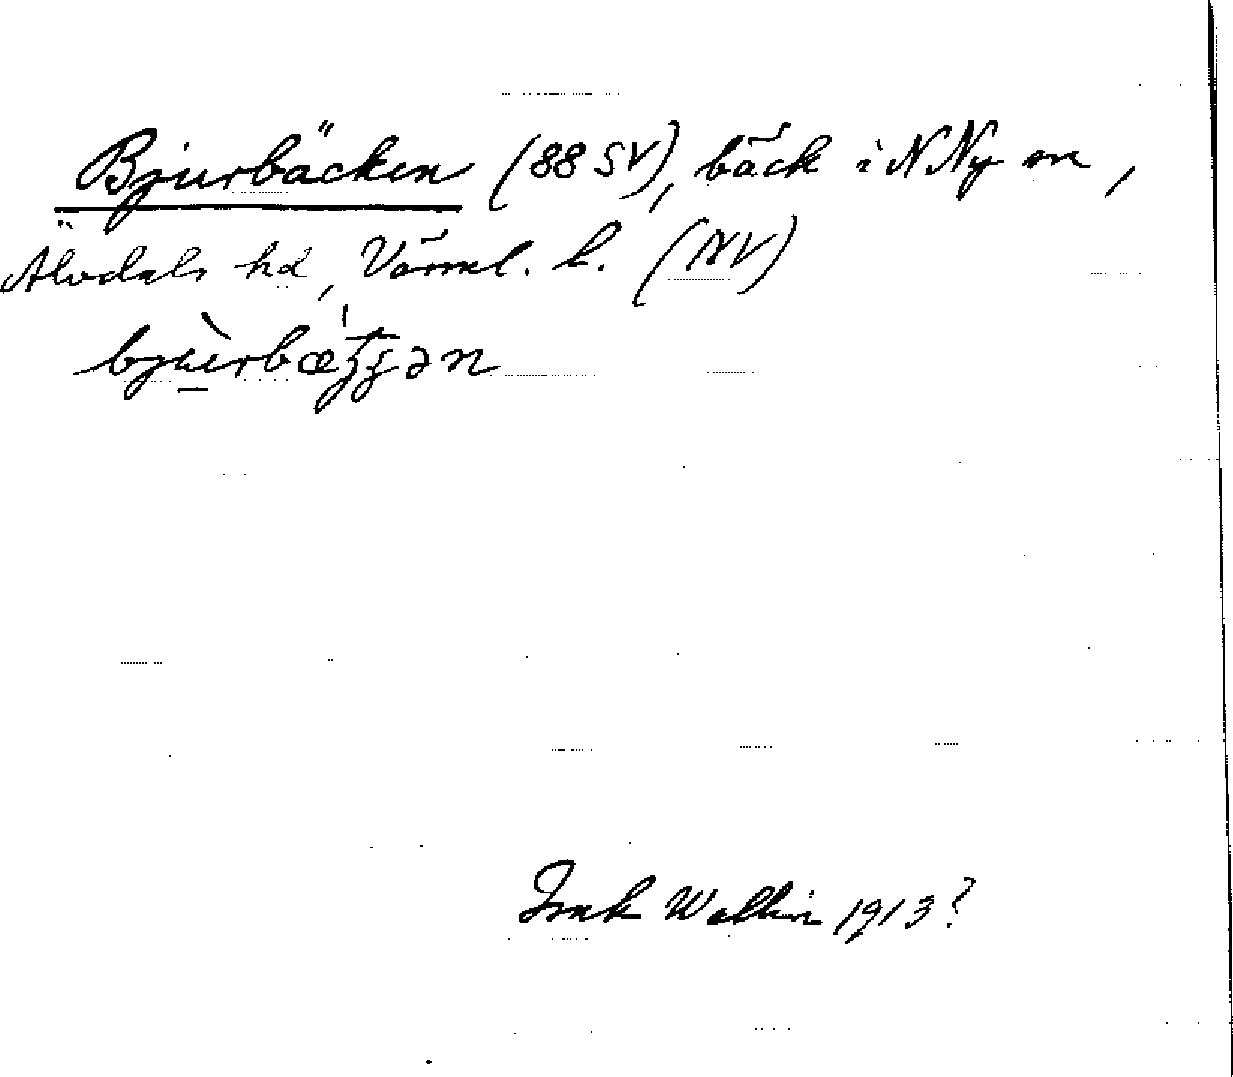 Bjurbäcken (88 SV), bäck i N Ny sn,
Älvdals hd, Värml. l. (NV)
Isak Wallin 1913?